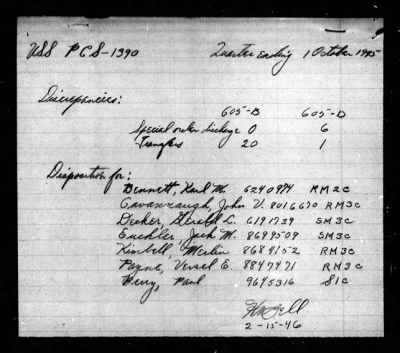 USS PCS-1390 Quarter Ending 1 October 1945
Discrepancies:
605-B 605-D
Special order discharge 0 6
Transfers 20 1
Disposition for:
Bennett, Karl M. 6240974 RM2C
Cavannaugh, John V. 8016670 RM3C
Decker, Gerald L. 6191739 SM3C
Euchler, Jack W. 8699509 SM3C
Kimbell, Merlin 8684152 RM3C
Payne, Versel E. 8847471 RM3C
Perry, Paul 9695316 S1C
2-15-46